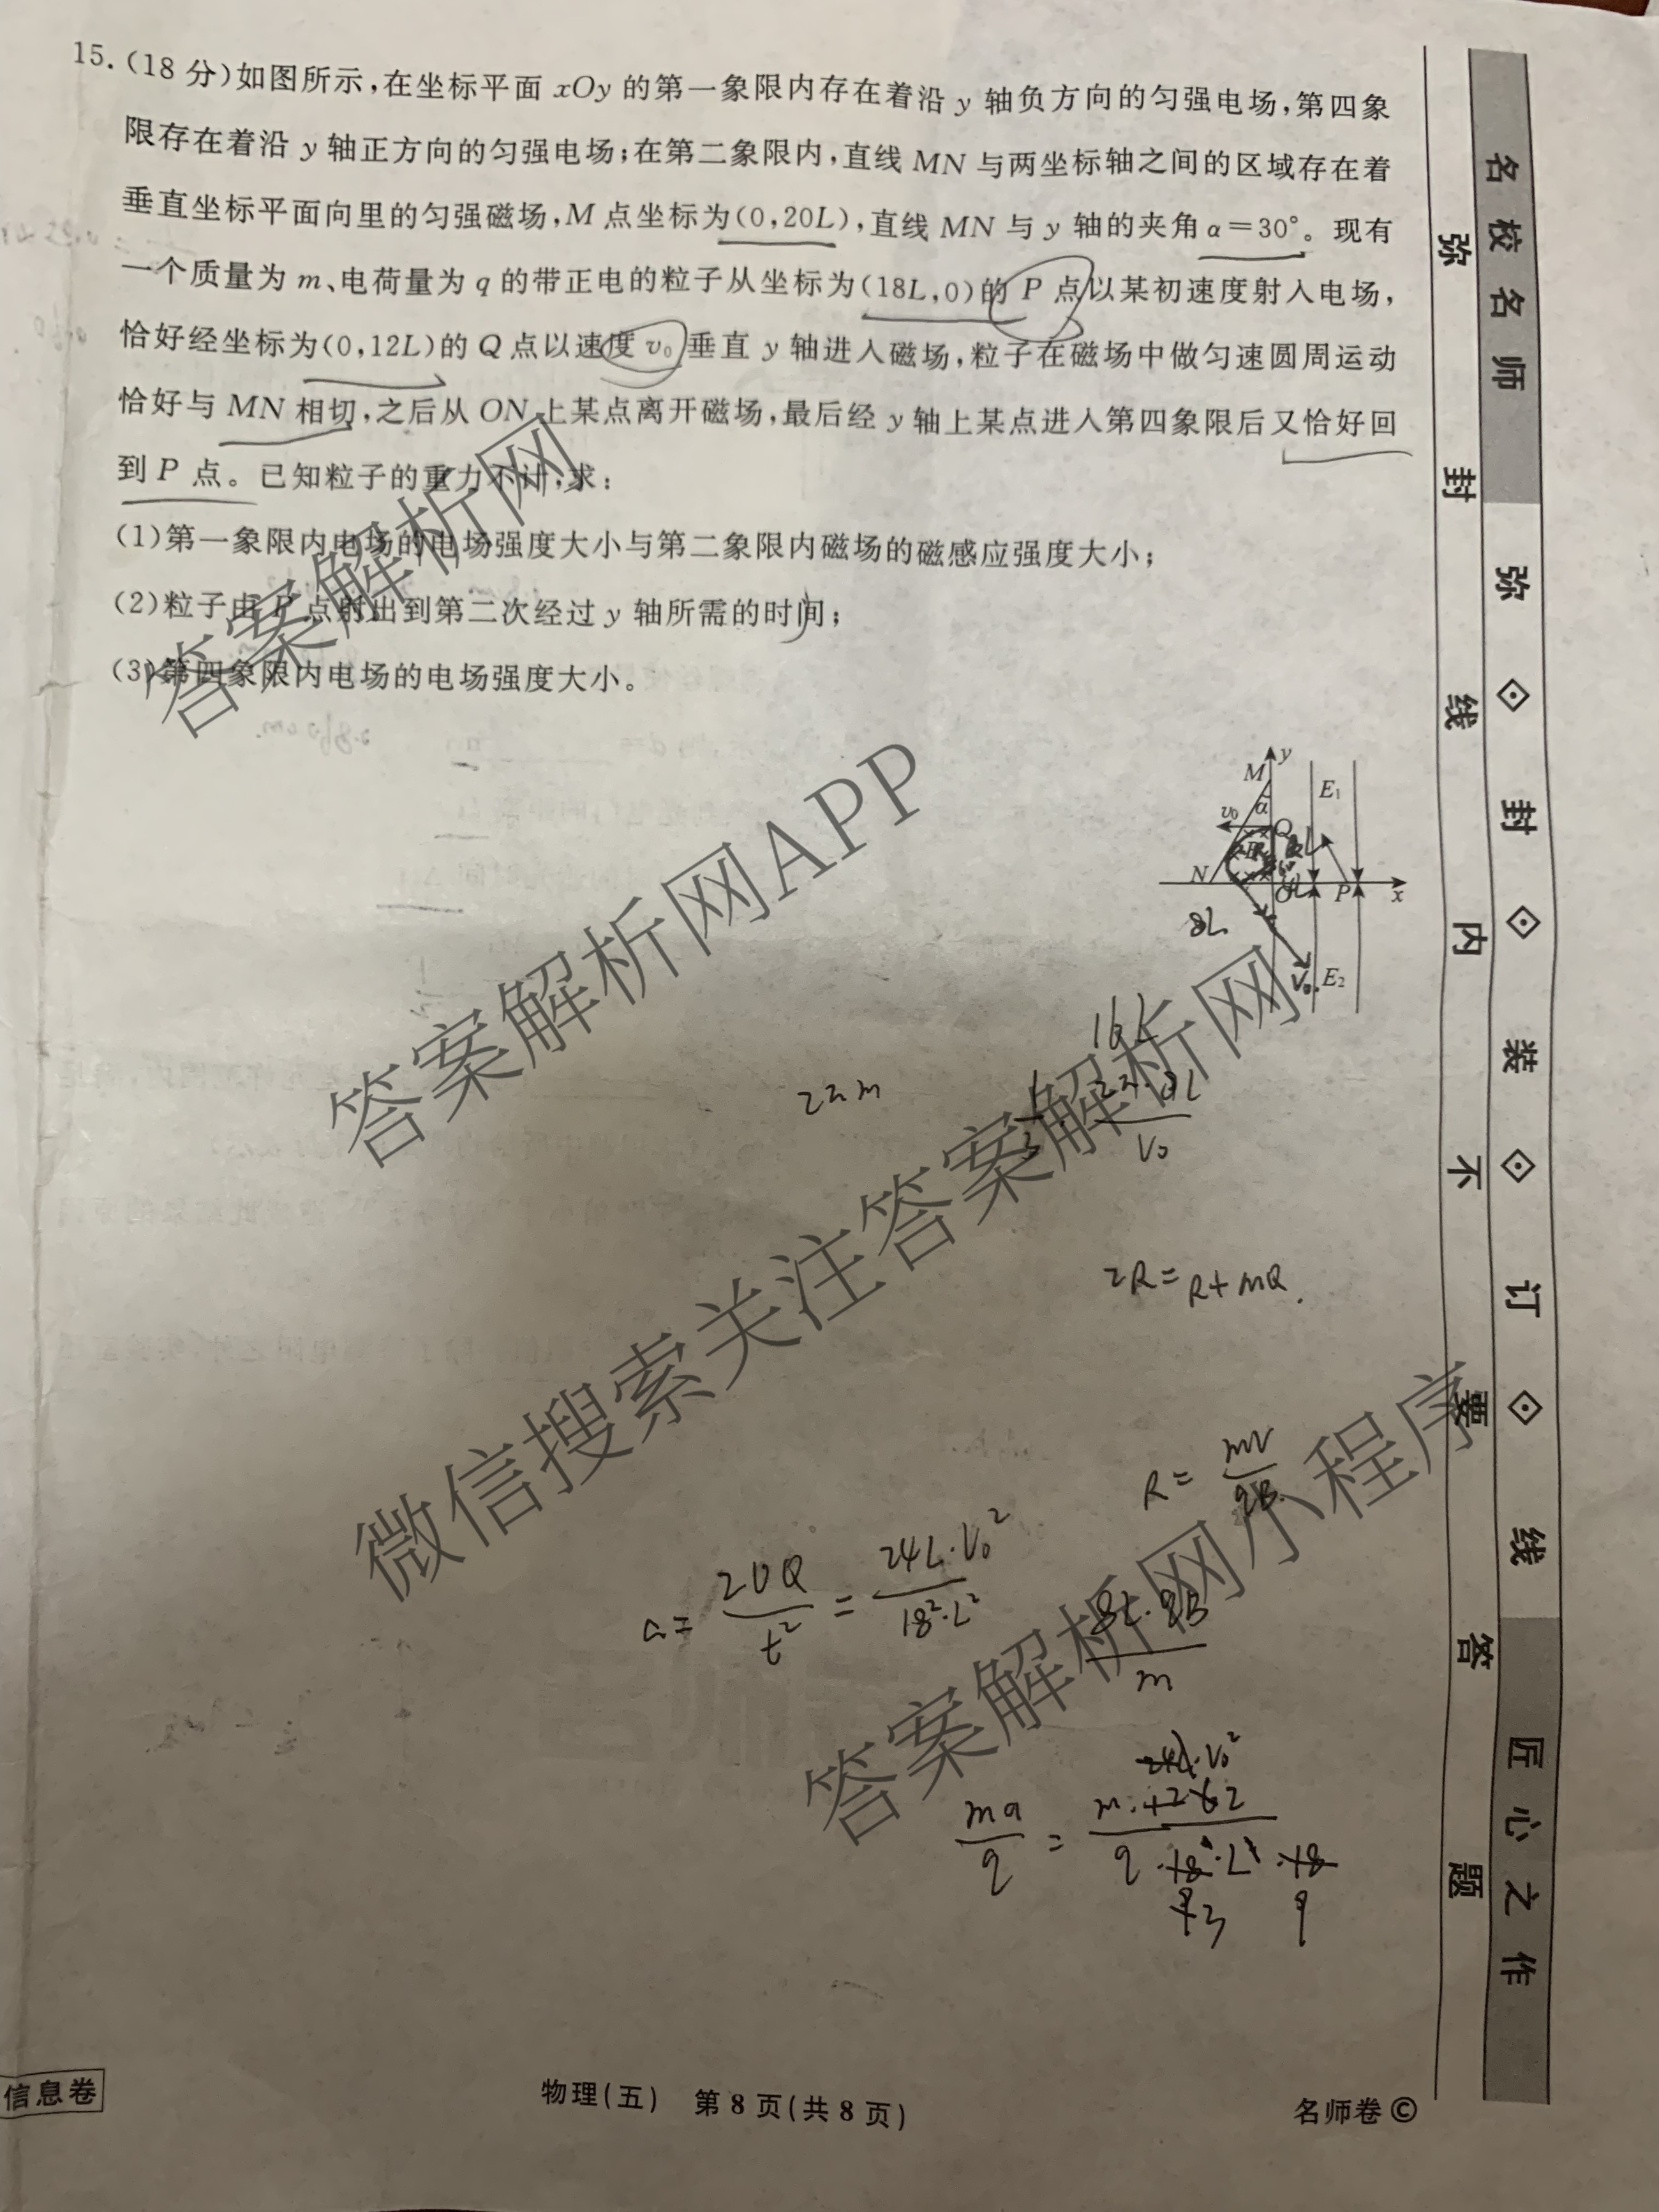 15.(18分)如图所示,在坐标平面 xOy 的第一象限内存在着沿 y 轴负方向的匀强电场,第四象
限存在着沿 y 轴正方向的匀强电场;在第二象限内,直线 MN 与两坐标轴之间的区域存在着
垂直坐标平面向里的匀强磁场,M 点坐标为(0,20L),直线 MN 与 y 轴的夹角 α=30°。现有
一个质量为 m、电荷量为 q 的带正电的粒子从坐标为(18L,0)的 P 点以某初速度射入电场,
恰好经坐标为(0,12L)的 Q 点以速度 v₀ 垂直 y 轴进入磁场,粒子在磁场中做匀速圆周运动
恰好与 MN 相切,之后从 ON 上某点离开磁场,最后经 y 轴上某点进入第四象限后又恰好回
到 P 点。已知粒子的重力不计,求:
(1)第一象限内电场的电场强度大小与第二象限内磁场的磁感应强度大小;
(2)粒子由 P 点射出到第二次经过 y 轴所需的时间;
(3)第四象限内电场的电场强度大小。
y
M
α
E₁
v₀
Q
N
O
P
x
8L
V₀
E₂
16L
2πm
1/3 · 2π·8L/V₀
2R=R+MQ.
R=mv/qB
a=2OQ/t²=24L·V₀²/18²·L²
8L·qB/m
24L·V₀²
ma/q =
答案解析网
答案解析网APP
微信搜索关注答案解析网
答案解析网小程序
名校名师
弥封装订线
匠心之作
弥封线内不要答题
信息卷
物理(五) 第 8 页(共 8 页)
名师卷©